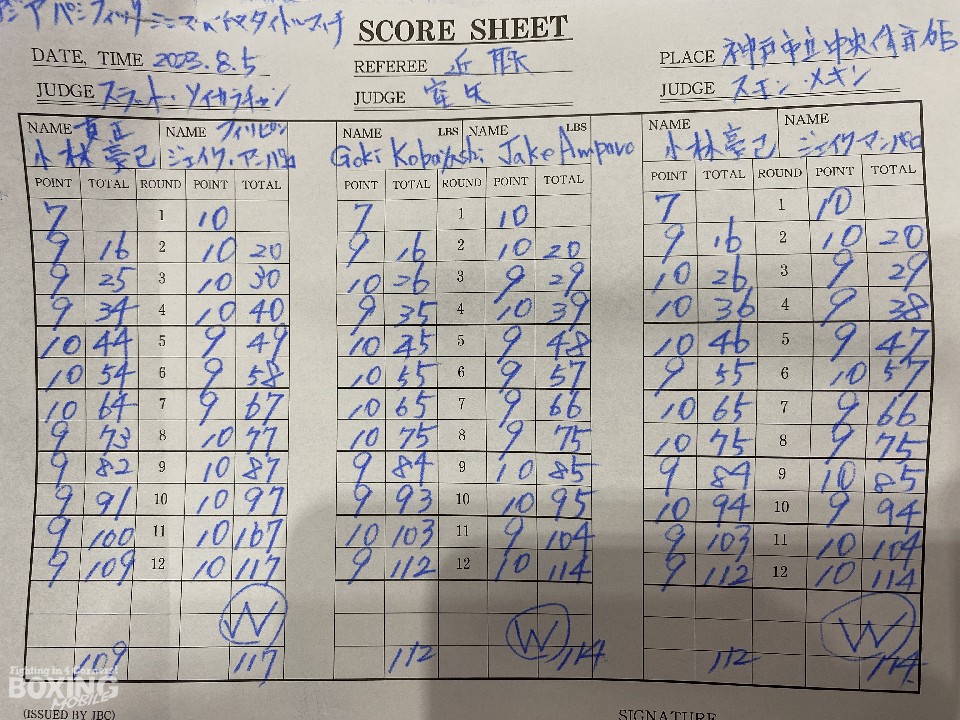 アジアパシフィックミニマム級タイトルマッチ
SCORE SHEET
DATE, TIME 2023.8.5
REFEREE 近藤
PLACE 神戸市立中央体育館
JUDGE スラット・ソイカラチャン
JUDGE
JUDGE スキン・メキン
NAME 真正 NAME フィリピン
小林豪己 ジェイク・アンパロ
NAME LBS NAME LBS
Goki Kobayashi Jake Amparo
NAME NAME
小林豪己 ジェイク・アンパロ
POINT TOTAL ROUND POINT TOTAL POINT TOTAL ROUND POINT TOTAL POINT TOTAL ROUND POINT TOTAL
7 1 10 7 1 10 7 1 10
9 16 2 10 20 9 16 2 10 20 9 16 2 10 20
9 25 3 10 30 10 26 3 9 29 10 26 3 9 29
9 34 4 10 40 9 35 4 10 39 10 36 4 9 38
10 44 5 9 49 10 45 5 9 48 10 46 5 9 47
10 54 6 9 58 10 55 6 9 57 9 55 6 10 57
10 64 7 9 67 10 65 7 9 66 10 65 7 9 66
9 73 8 10 77 10 75 8 9 75 10 75 8 9 75
9 82 9 10 87 9 84 9 10 85 9 84 9 10 85
9 91 10 10 97 9 93 10 10 95 10 94 10 9 94
9 100 11 10 107 10 103 11 9 104 9 103 11 10 104
9 109 12 10 117 9 112 12 10 114 9 112 12 10 114
W W W
109 117 112 114 112 114
Fighting in 4 Corners!
BOXING
MOBILE
(ISSUED BY JBC)
SIGNATURE